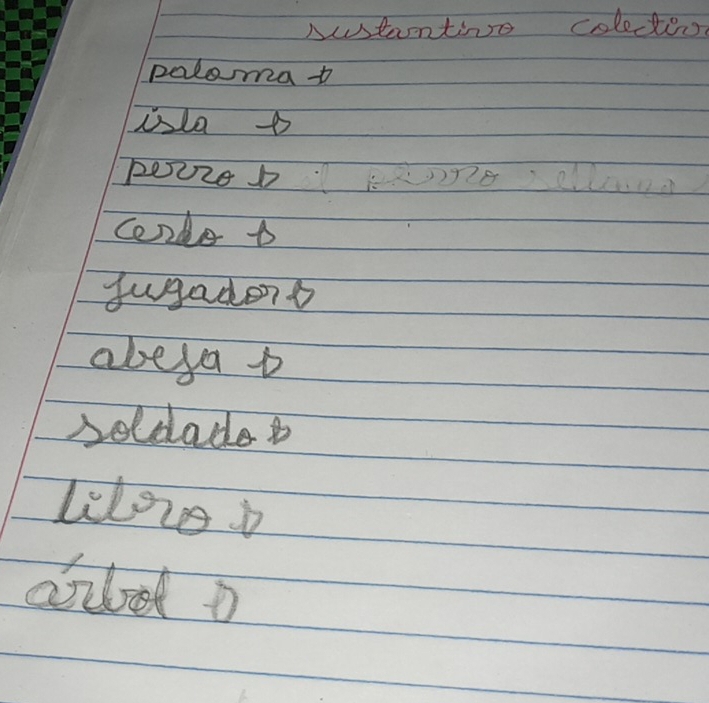 sustantivo colectivo
paloma →
isla →
perro → el perro
cerdo →
jugador →
abeja →
soldado →
libro →
árbol →